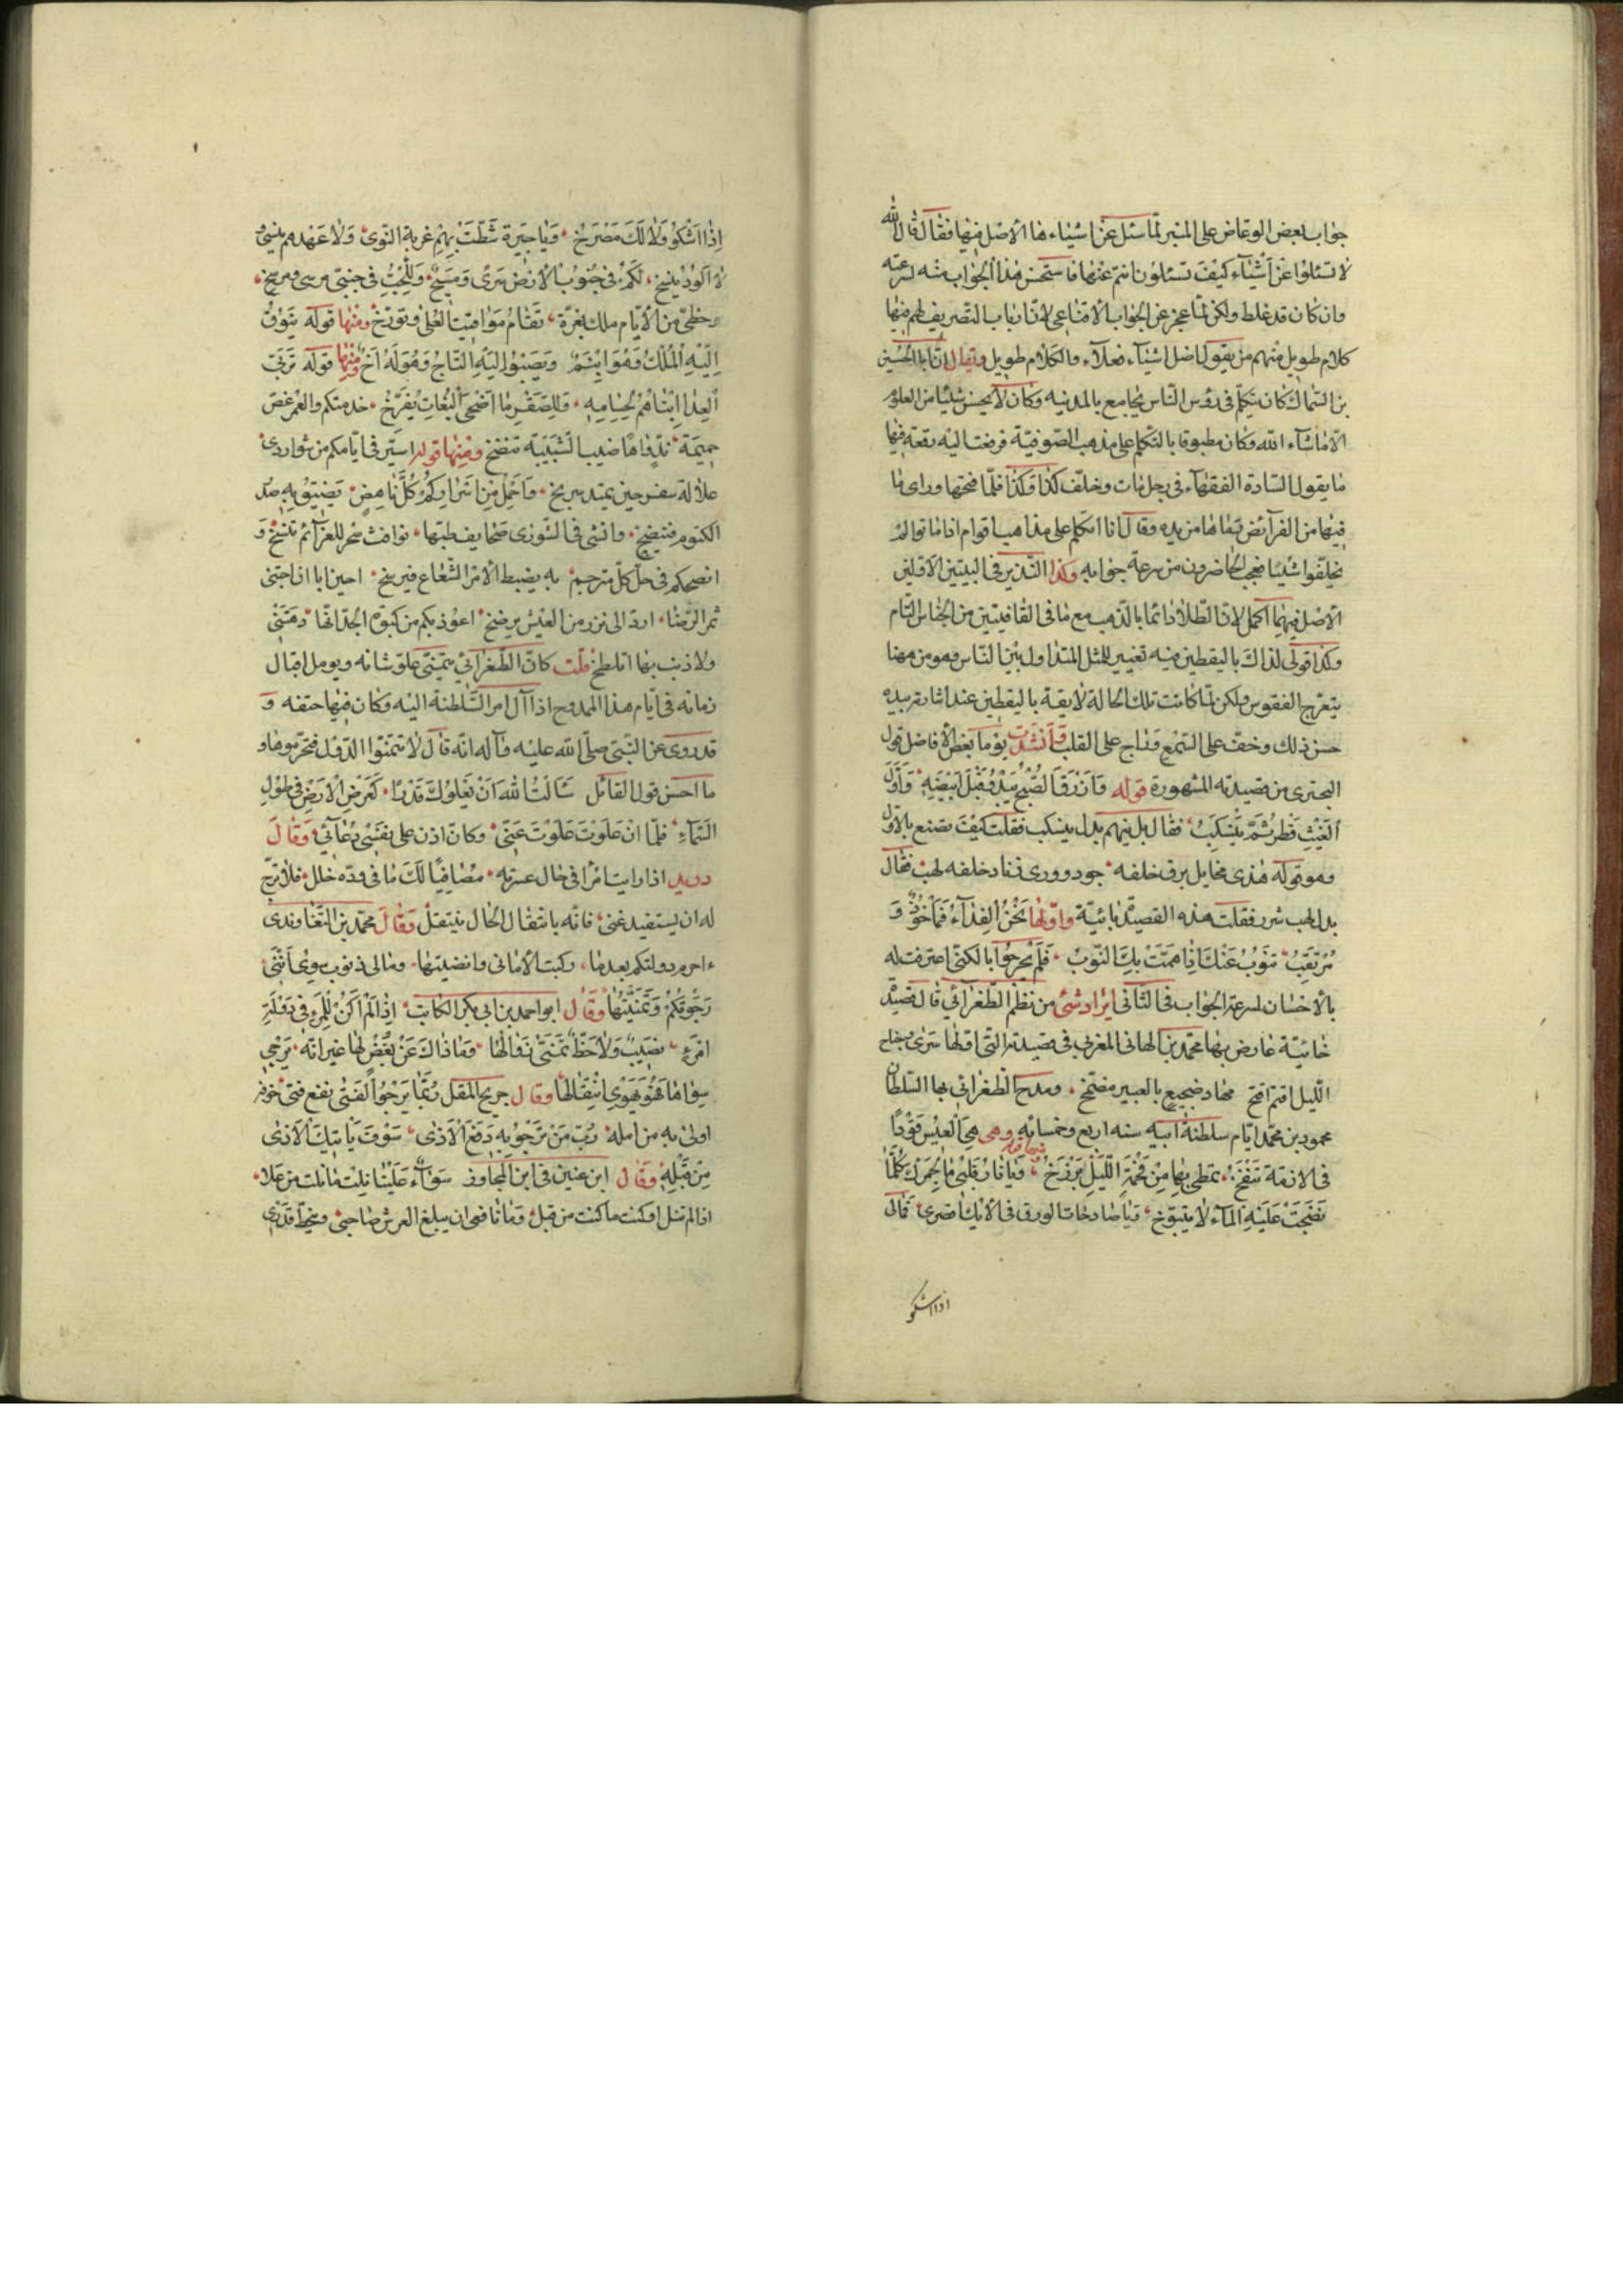 جواب بعض الوعاض على المنبر لما سئل عن اشياء ما الأصل فيها فقال قال الله
لا تسئلوا عن أشياء كيف تسئلون انتم عنها فاستحسن هذا الجواب منه لسرعته
وان كان قد غلط ولكن لما عجز عن الجواب الاقناعى لان ارباب التصريف لهم فيها
كلام طويل منهم من يقول اصل اشياء فعلاء والكلام طويل ويقال ان ابا الحسين
بن السماك كان يتكلم فى رؤس الناس بجامع بالمدينه وكان لا يحسن شيئا من العلوم
الا ما شاء الله وكان مطبوقا بالتكلم على مذهب الصوفية فرفعت اليه رقعة فيها
ما يقول السادة الفقهاء فى رجل مات وخلف كذا وكذا فلما فتحها وراى ما
فيها من الفرائض رماها من يده وقال انا اتكلم على مذاهب اقوام اذا ماتوا لم
يخلفوا شيئا فعجب الحاضرون من سرعة جوابه وكذا النذير فى البيتين الاولين
الاصل فيهما اكمل لان الطلا دائما بالذهب مع ما فى القافيتين من الجناس التام
وكذا قولى لذاك باليقطين فيه تغيير للمثل المتداول بين الناس وهو من هنا
يتعرج الفقوس ولكن لما كانت تلك الحالة لايقة باليقطين عند اشارته بيده
حسن ذلك وخف على السمع وراج على القلب وأنشدت يوما بعض الأفاضل قول
البحترى من قصيدته المشهورة قوله وأزرق الصبح يبدو قبل أبيضه وأول
الغيث قطر ثم ينسكب فقال بل ينهم بدل ينسكب فقلت كيف تصنع بالاول
وهو قوله هذى مخايل برق خلفه جود وورى زناد خلفه لهب فقال
بدل لهب شرر فقلت هذه القصيدة بائية واولها نحن الفداء فمأخوذ و
مرتقب ينوب عنك اذا همت بك النوب فلم يحر جوابا لكنى اعترفت له
بالأحسان لسرعة الجواب فى الثانى ايراد شئ من نظم الطغرائي قال قصيدة
خائية عارض بها محمد بن الهانى المغربى فى قصيدته التى اولها سرى وجناح
الليل اقتم افتخ مهاد ضجيع بالعبير مضمخ ومدح الطغرائى بها السلطان
محمود بن محمد ايام سلطنة ابيه سنه اربع وخمسائه وهى هى العيس قودا
فى الازمة تنفخ تمطى بها من فحمة الليل برزخ ويا نار قلبى ما لجمرك كلما
نضحت عليه الماء لا يتبوخ ويا صادحات الورق فى الأيك اصرخى فمالى
اذا اشكو
إذا أشكو ولا لك مصرخ ويا جيرة شطت بهم غربة النوى ولا عهدهم ينسى
لا الود ينسخ لكم فى جنوب الأرض مرعى ومسرح وللحب فى جنبى مرسى ومرسخ
وحظى من الأيام ملك بغرة تقام مواقيت العلى وتؤرخ ومنها قوله يتوق
إليه الملك وهو ابثم ويصبوا اليه التاج وهو له أخ ومنها قوله ترجى
العدا ابناهم لحيامه وللصقر ما اضحى البغاث يفرخ خدمتكم والعمر غض
جميمة
علالة سفر حين يمتد بربخ واحمل من اشراركم كل ناهض يضيق به صدر
الكتوم فينضح وانشى فى الشورى صحايف طبتها نوافث سحر للعزائم تنسخ و
انصحكم فى حل كل مترجم به يضبط الامر الشعاع فيرسخ احين ابا اذا جتنى
ثمر الرضا ارد الى نزر من العيش يرضخ اعوذ بكم من كبوة الجد انها رمتنى
ولا ذنب بها اتلطخ قلت كان الطغرائى يتمنى علو شانه ويومل اقبال
زمانه فى ايام هذا الممدوح اذا آل امر السلطنة اليه وكان فيها حتفه و
قد روى عن النبى صلى الله عليه وآله انه قال لا تتمنوا الدول فتحرموها و
ما احسن قول القائل سألت الله أن تعلو بك قدرا كعرض الأرض فى طول
السماء فلما ان علوت علوت عنى وكان اذن على نفسى دعائى وقال
دريد اذا رايت امرا فى حال عسرته مصافيا لك ما فى وده خلل فلا ترج
له ان يستفيد غنى فانه بانتقال الحال ينتقل وقال محمد بن النهاوندى
ءاحرم دولتكم بعدما ركبت الأمانى وانضيتها ومالى ذنوب سوى أننى
رجوتكم وتمنيتها وقال ابو احمد بن ابى بكر الكاتب إذا لم اكن للمرء فى دولة
امرء نصيب ولا حظ تمنى زوالها وما ذاك عن بغض لها غير انه يرجى
سواها فهو يهوى انتقالها وقال جريح المقل ربما يرجو الفتى نفع فتى خوفه
اولى به من امله رب من ترجو به دفع الاذى سوف ياتيك الاذى
من قبله وقال ابن عنين فى ابن المجاور سواء علينا نلت ما نلت من علا
اذا لم ننل او كنت ما كنت من قبل وما نافعى ان يبلغ العرش صاحبى